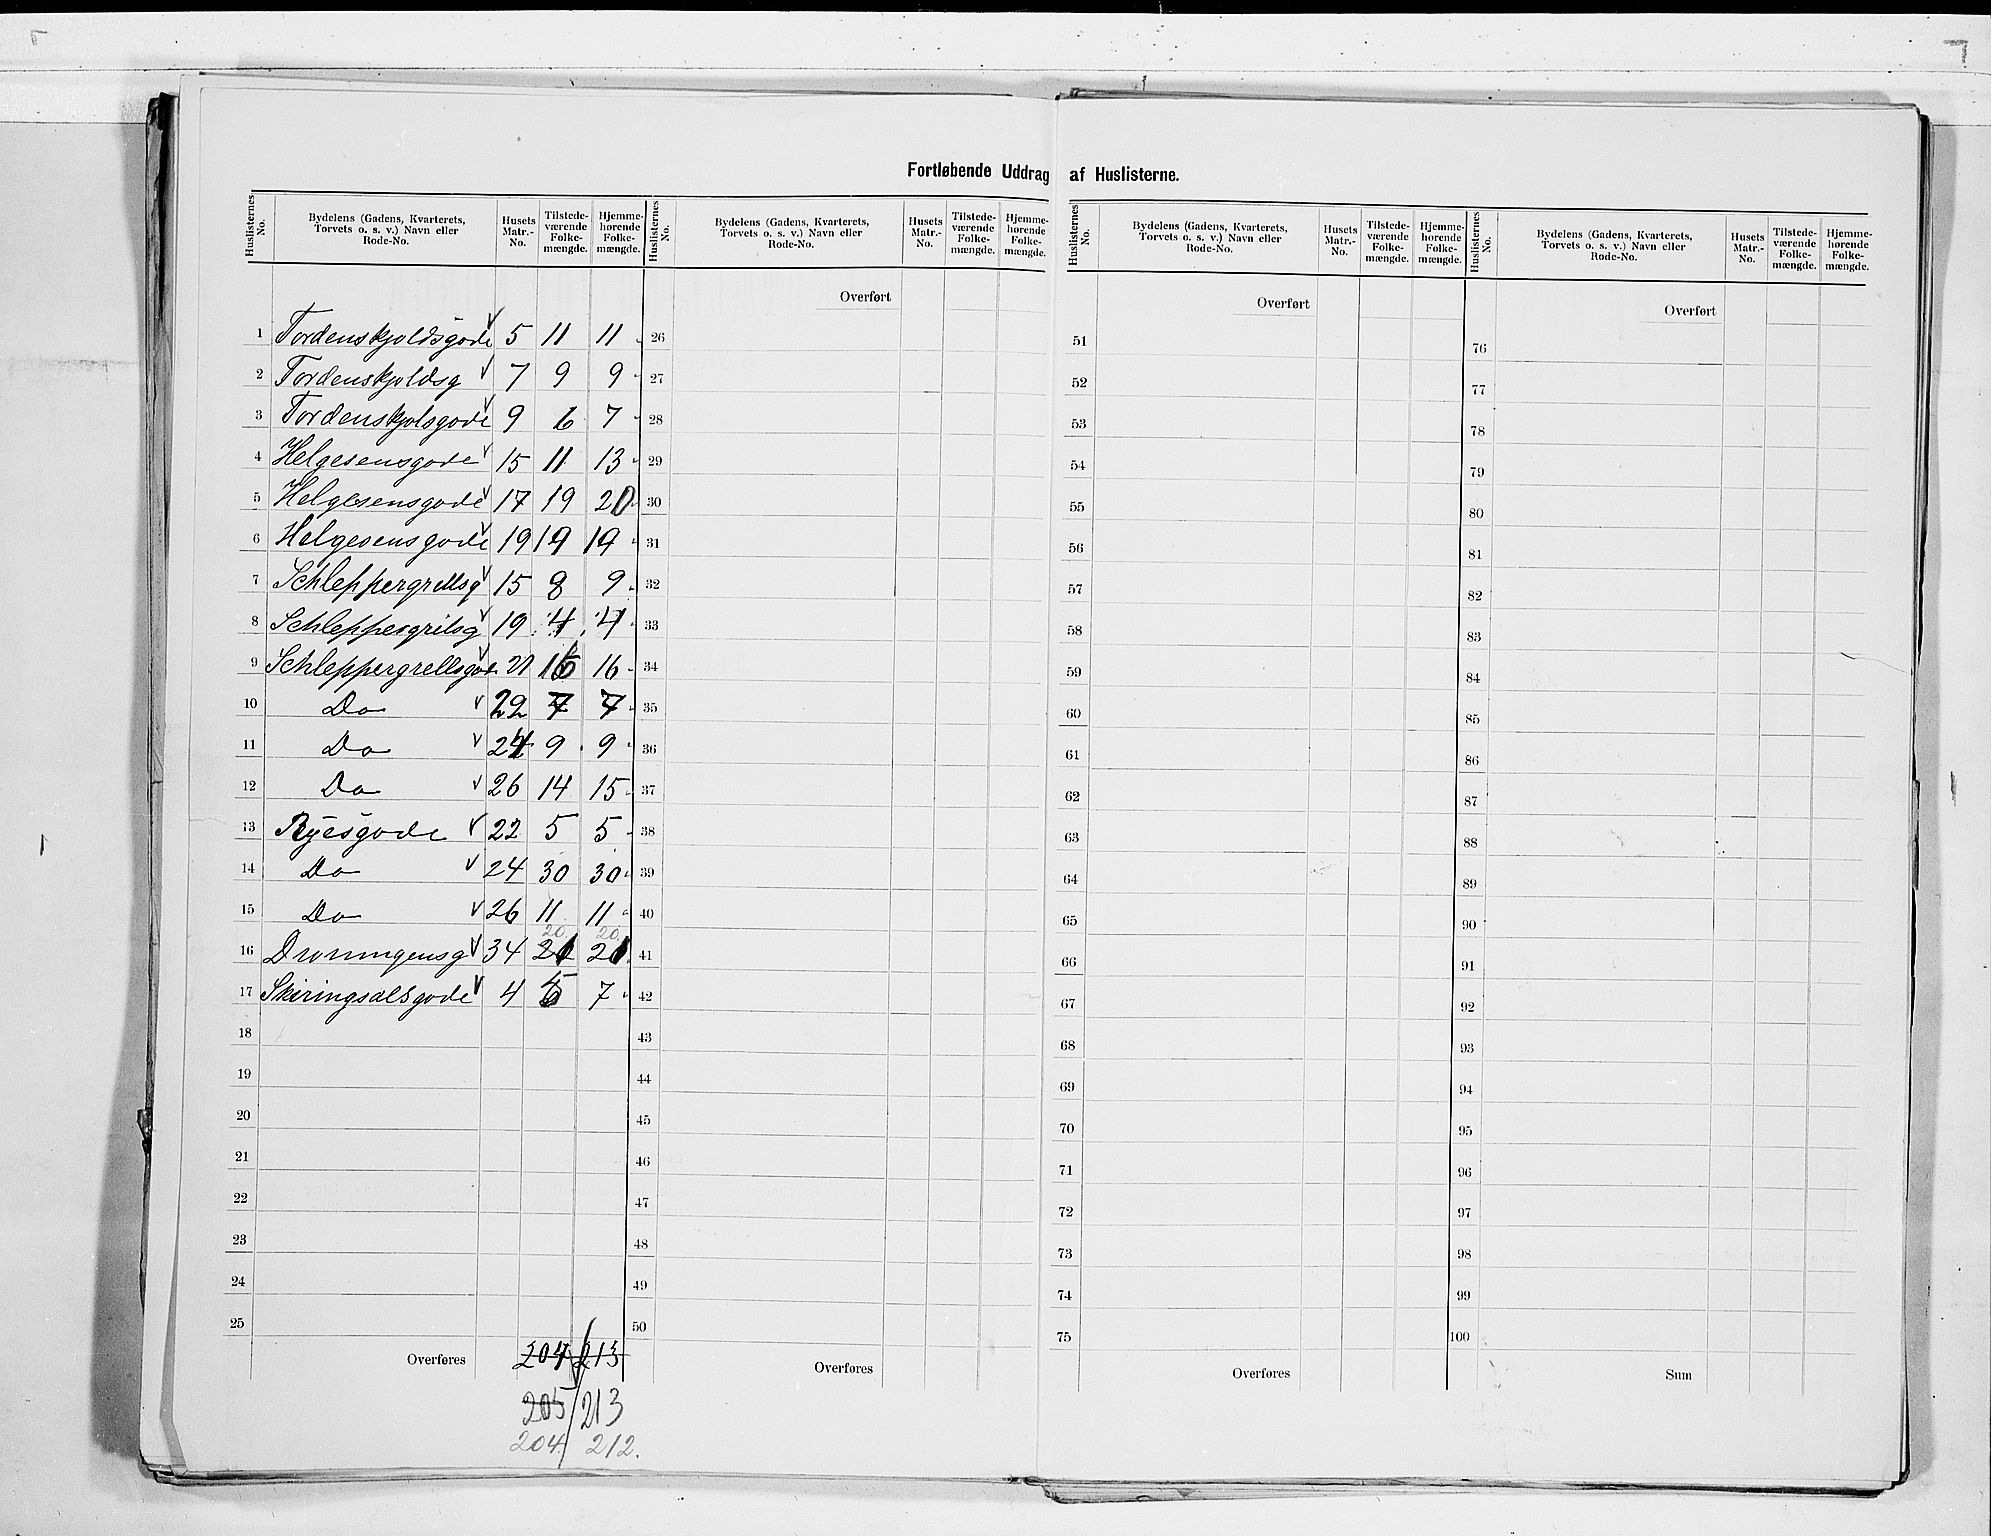 Fortløbende Uddrag af Huslisternes.
Huslisternes No. Bydelens (Gadens, Kvarterets, Torvets o. s. v.) Navn eller Rode-No. Husets Matr.-No. Tilstede-værende Folke-mængde. Hjemme-hørende Folke-mængde.
Huslisternes No. Bydelens (Gadens, Kvarterets, Torvets o. s. v.) Navn eller Rode-No. Husets Matr.-No. Tilstede-værende Folke-mængde. Hjemme-hørende Folke-mængde.
Huslisternes No. Bydelens (Gadens, Kvarterets, Torvets o. s. v.) Navn eller Rode-No. Husets Matr.-No. Tilstede-værende Folke-mængde. Hjemme-hørende Folke-mængde.
Huslisternes No. Bydelens (Gadens, Kvarterets, Torvets o. s. v.) Navn eller Rode-No. Husets Matr.-No. Tilstede-værende Folke-mængde. Hjemme-hørende Folke-mængde.
Overført Overført Overført
1 Tordenskjoldsgade 5 11 11 26 51 76
2 Tordenskjoldsg 7 9 9 27 52 77
3 Tordenskjolsgade 9 6 7 28 53 78
4 Helgesensgade 15 11 13 29 54 79
5 Helgesensgade 17 19 20 30 55 80
6 Helgesensgade 19 19 19 31 56 81
7 Schleppergrellsg 15 8 9 32 57 82
8 Schleppergrilsg 19 4 4 33 58 83
9 Schleppergrellsgad 21 16 34 59 84
10 Do 22 7 7 35 60 85
11 Do 24 9 9 36 61 86
12 Do 26 14 15 37 62 87
13 Ryesgade 22 5 5 38 63 88
14 Do 24 30 30 39 64 89
15 Do 26 11 11 40 65 90
20. 20.
16 Dronningensg 34 21 21 41 66 91
17 Skiringsalsgade 4 7 42 67 92
18 43 68 93
19 44 69 94
20 45 70 95
21 46 71 96
22 47 72 97
23 48 73 98
24 49 74 99
25 50 75 100
Overføres 204 213 Overføres Overføres Sum
205 213
204. 212.